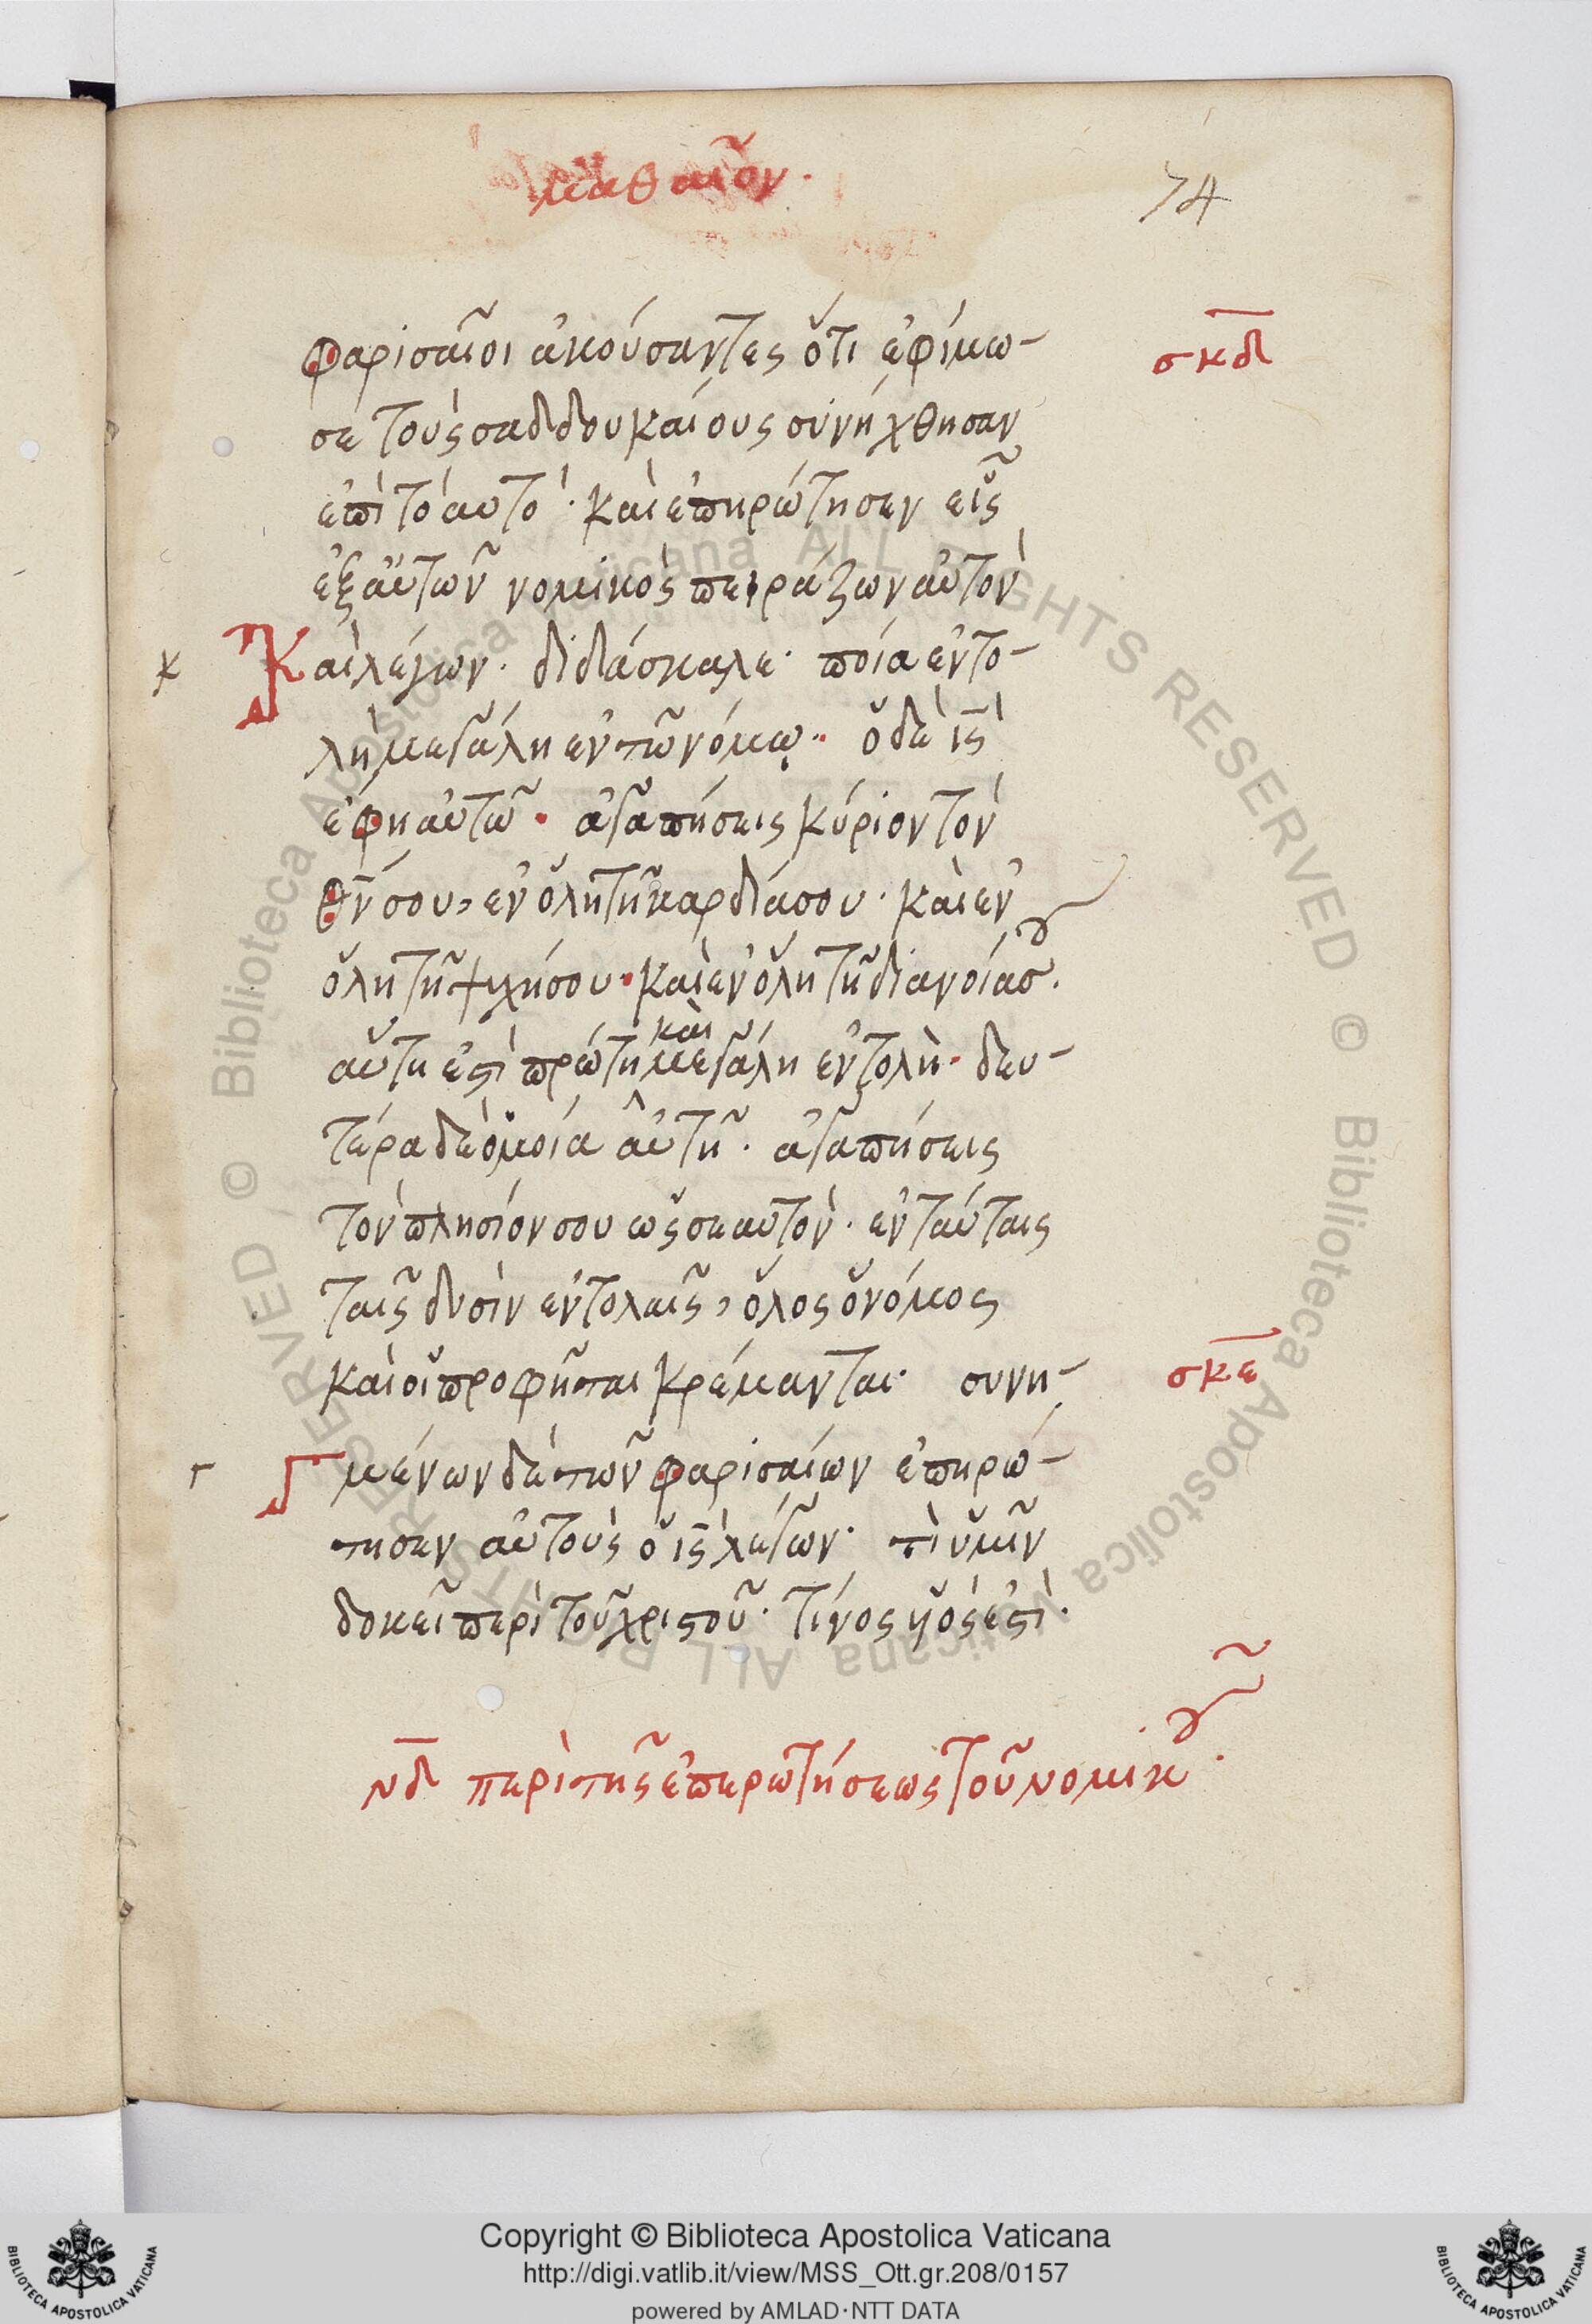 ματθαῖον.
74
φαρισαῖοι ἀκούσαντες ὅτι ἐφίμω-
σκδ
σε τοὺς σαδδουκαίους συνήχθησαν
ἐπὶ τὸ αυτό· καὶ ἐπηρώτησεν εἷς
ἐξ αὐτῶν νομικὸς πειράζων αὐτὸν
Καὶ λέγων· διδάσκαλε· ποία ἐντο-
λὴ μεγάλη ἐν τῶ νόμω· ὁ δὲ ις
ἔφη αὐτῶ· ἀγαπήσεις κύριον τὸν
θν σου, ἐν ὅλη τῆ καρδία σου· καὶ ἐν
ὅλη τῆ ψυχῆ σου· καὶ ἐν ὅλη τῆ διανοία σου.
αὕτη ἐστὶ πρώτη καὶ μεγάλη ἐντολὴ· δευ-
τέρα δὲ ὁμοία αὐτῆ· ἀγαπήσεις
τὸν πλησίον σου ὡς σεαυτὸν· ἐν ταύταις
ταῖς δυσὶν ἐντολαῖς, ὅλος ὁ νόμος
καὶ οἱ προφῆται κρέμανται· συνη-
σκε
γμένων δὲ τῶν φαρισαίων ἐπηρώ-
τησεν αὐτοὺς ὁ ις λέγων· τί ὑμῖν
δοκεῖ περὶ τοῦ χριστοῦ· τίνος υἱός ἐστι·
νδ περὶ τῆς ἐπερωτήσεως τοῦ νομικοῦ·
Copyright © Biblioteca Apostolica Vaticana
http://digi.vatlib.it/view/MSS_Ott.gr.208/0157
powered by AMLAD·NTT DATA
BIBLIOTECA APOSTOLICA VATICANA
BIBLIOTECA APOSTOLICA VATICANA
Biblioteca Apostolica Vaticana ALL RIGHTS RESERVED ©
Biblioteca Apostolica Vaticana ALL RIGHTS RESERVED ©